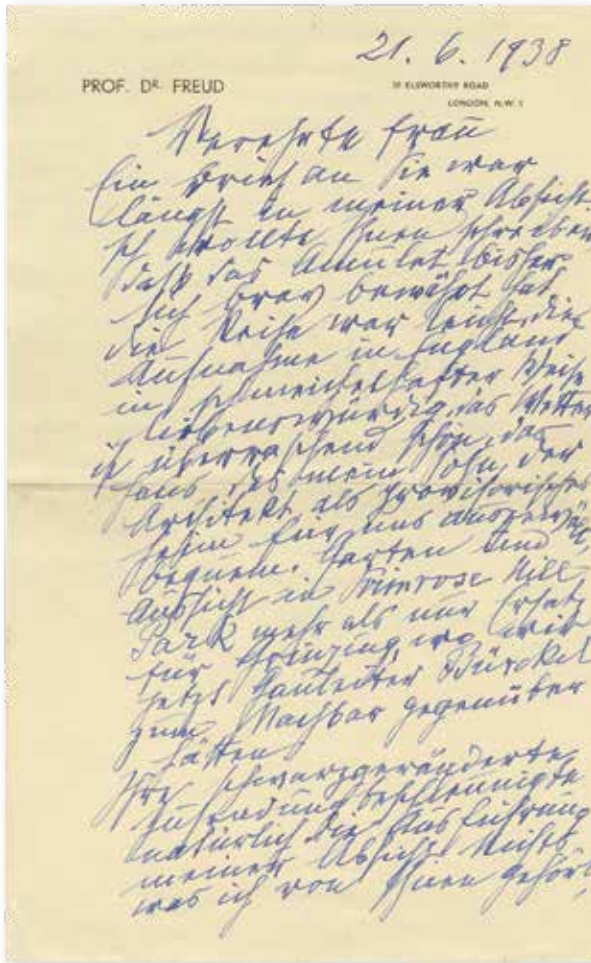 21. 6. 1938
PROF. DR. FREUD
39 ELSWORTHY ROAD
LONDON, N.W. 3
Verehrte Frau
Ein Brief an Sie war
längst in meiner Absicht.
Ich wollte Ihnen schreiben
daß das Amulet bisher
sich brav bewährt hat
die Reise war leicht, die
Aufnahme in England
in schmeichelhafter Weise
liebenswürdig, das Wetter
ist überraschend schön, das
Haus, das mein Sohn, der
Architekt als provisorisches
Heim für uns ausgewählt,
bequem. Garten und
Aussicht in Primrose Hill
Park mehr als nur Ersatz
für Grinzing, wo wir
jetzt Gauleiter Bürckel
zum Nachbar gegenüber
hätten
Ihre schwarzgeränderte
Zusendung beschleunigte
natürlich die Ausführung
meiner Absicht. Nichts
was ich von Ihnen gehört,